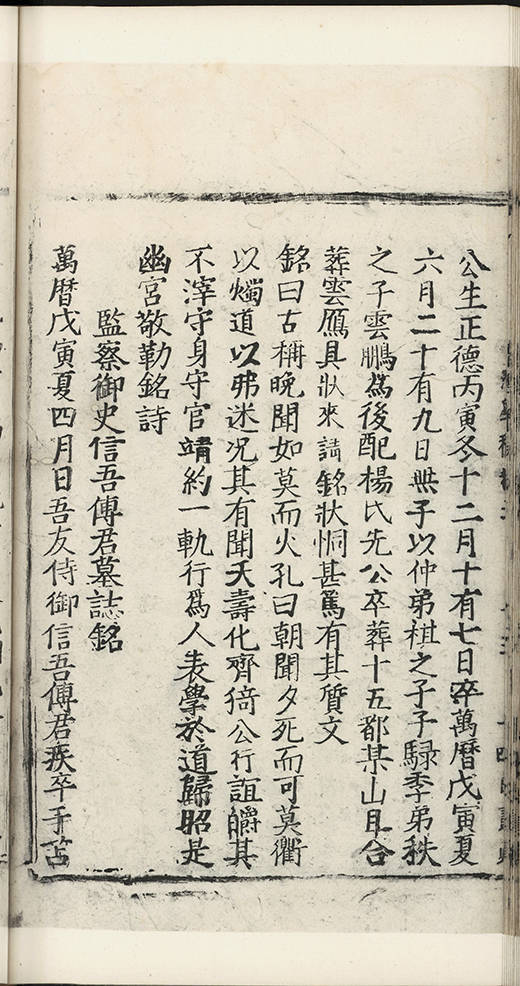 公生正德丙寅冬十二月十有七日卒萬曆戊寅夏
六月二十有九日無子以仲弟棋之子子騄季弟秩
之子雲鵬爲後配楊氏先公卒葬十五都某山月合
葬雲鴈具狀來請銘狀悃甚篤有其質文
銘曰古稱晚聞如莫而火孔曰朝聞夕死而可莫衢
以燭道以弗迷况其有聞夭壽化齊猗公行誼皭其
不滓守身守官靖約一軌行爲人表學於道歸昭是
幽宮敬勒銘詩
監察御史信吾傅君墓誌銘
萬曆戊寅夏四月日吾友侍御信吾傅君疾卒于苫